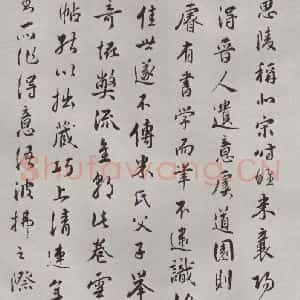 思陵稱北宋時惟米襄陽
得晉人遺意虞道園則
睿有書學而筆不逮識
佳世遂不傳米氏父子舉
奇怪弊流金朝此卷雲
帖能以拙藏巧上清連
而作得意發波拂之際
Shufawang.CN